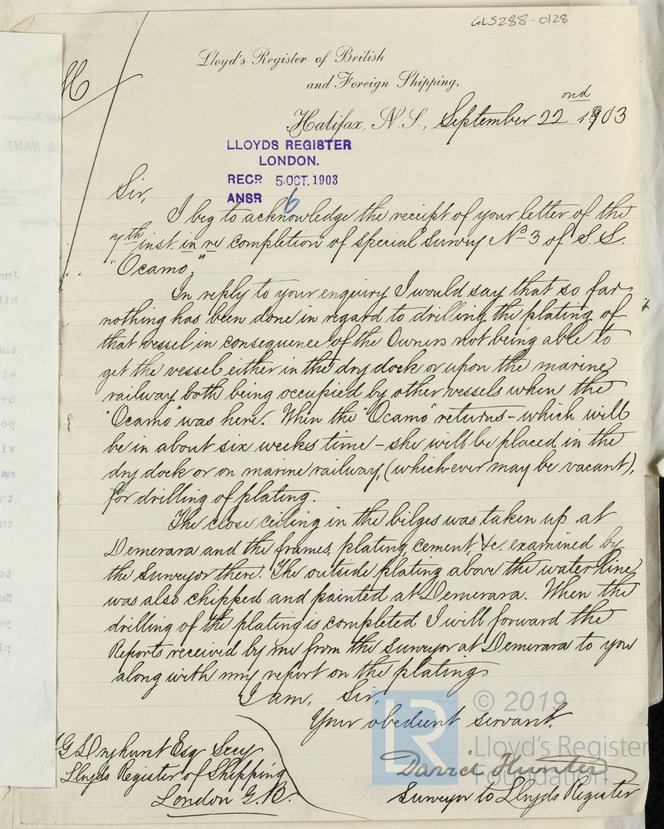 GLS288-0128
Lloyd's Register of British
and Foreign Shipping,
Halifax, N.S., September 22nd 1903
LLOYDS REGISTER
LONDON.
RECD 5.OCT.1903
ANSR 6
Sir,
I beg to acknowledge the receipt of your letter of the
7th inst. in re completion of special Survey No 3 of S.S.
"Ocamo,"
In reply to your enquiry I would say that so far
nothing has been done in regard to drilling the plating of
that vessel in consequence of the Owners not being able to
get the vessel either in the dry dock or upon the marine
railway both being occupied by other vessels when the
"Ocamo" was here. When the "Ocamo" returns - which will
be in about six weeks time - she will be placed in the
dry dock or on marine railway, (which ever may be vacant),
for drilling of plating.
The close ceiling in the bilges was taken up at
Demerara and the frames, plating, cement, &c. examined by
the Surveyor there. The outside plating above the water line
was also chipped and painted at Demerara. When the
drilling of the plating is completed I will forward the
Reports received by me from the Surveyor at Demerara to you
along with my report on the plating.
I am, Sir,
Your obedient servant,
David Hunter
Surveyor to Lloyds Register
Esq Secy
Lloyds Register of Shipping
London E.C.
LR
© 2019
Lloyd's Register
Foundation